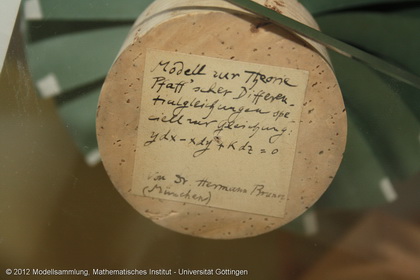 Modell zur Theorie
Pfaff'scher Differen-
tialgleichungen spe-
ciell zur Gleichung:
ydx - xdy + kdz = 0
von Dr. Hermann
(München)
© 2012 Modellsammlung, Mathematisches Institut - Universität Göttingen